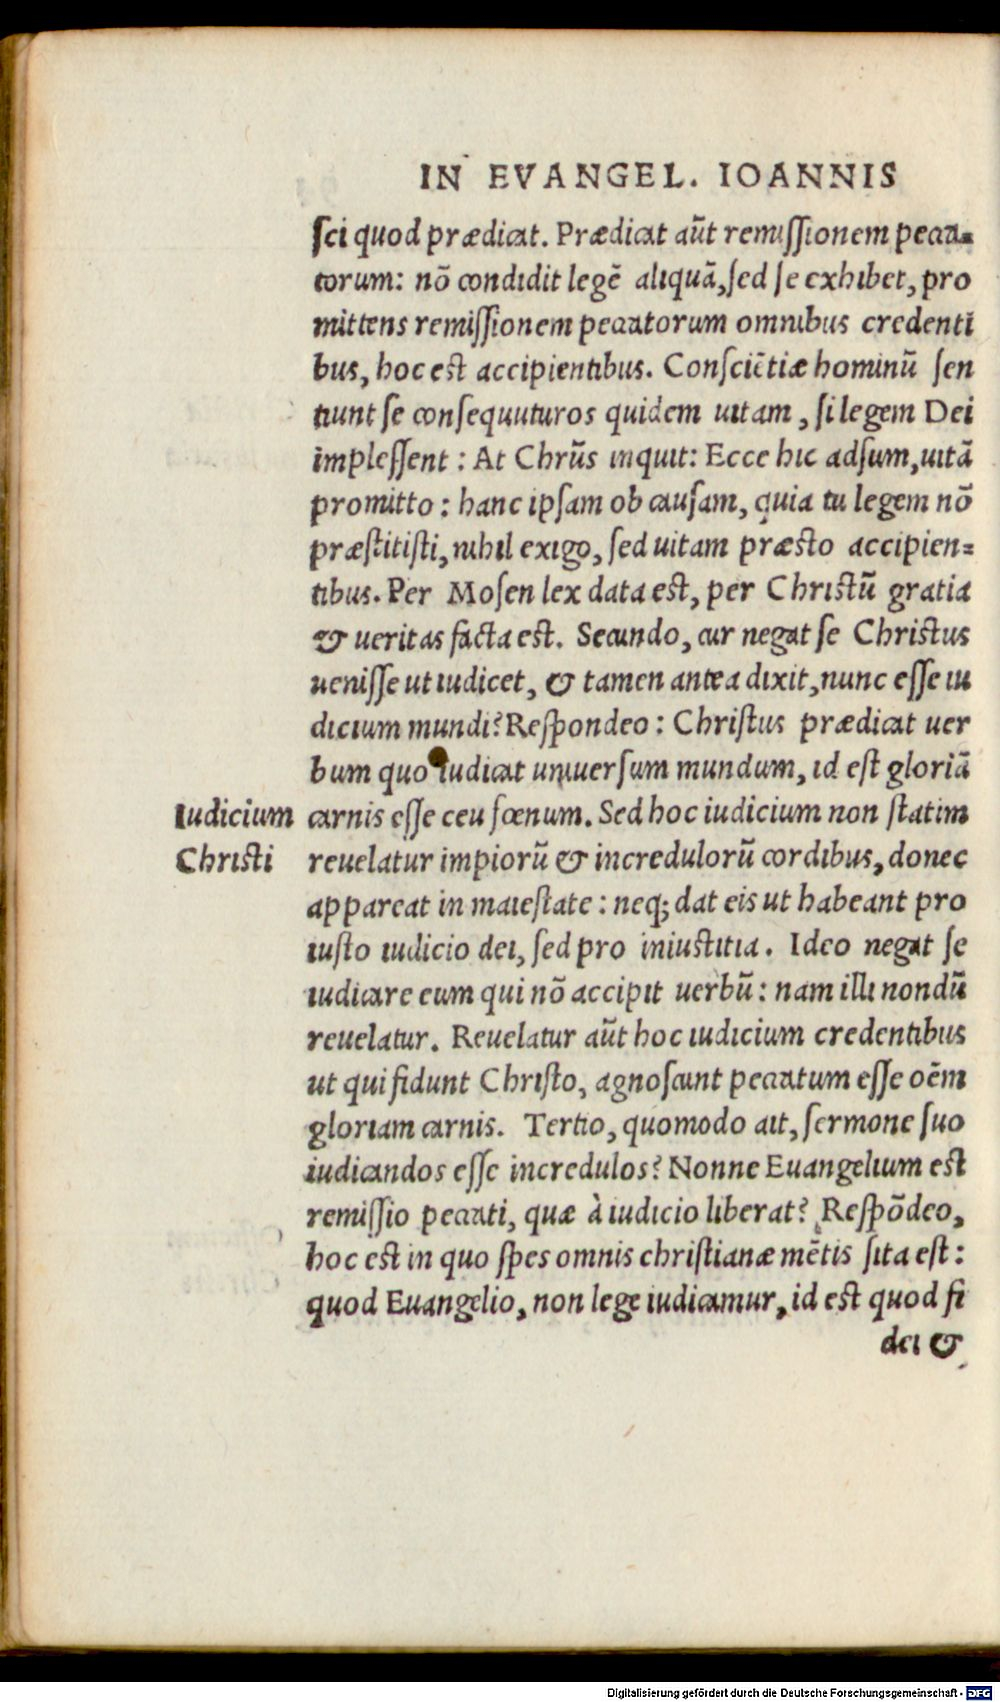 IN EVANGEL. IOANNIS
ſci quod prædicat. Prædicat aūt remiſſionem pecca⸗
torum: nō condidit legē aliquā, ſed ſe exhibet, pro
mittens remiſſionem peccatorum omnibus credenti
bus, hoc est accipientibus. Conſciētiæ hominū ſen
tiunt ſe conſequuturos quidem uitam, ſi legem Dei
impleſſent: At Chrūs inquit: Ecce hic adſum, uitā
promitto: hanc ipſam ob cauſam, quia tu legem nō
præſtitiſti, nihil exigo, ſed uitam præsto accipien⸗
tibus. Per Moſen lex data est, per Christū gratia
& ueritas facta est. Secundo, cur negat ſe Christus
ueniſſe ut iudicet, & tamen antea dixit, nunc eſſe iu
dicium mundi? Reſpondeo: Chriſtus prædicat uer
bum quo iudicat uniuerſum mundum, id eſt gloriā
Iudicium carnis eſſe ceu fœnum. Sed hoc iudicium non ſtatim
Christi reuelatur impiorū & incredulorū cordibus, donec
appareat in maieſtate: neq; dat eis ut habeant pro
iuſto iudicio dei, ſed pro iniustitia. Ideo negat ſe
iudicare eum qui nō accipit uerbū: nam illi nondū
reuelatur. Reuelatur aūt hoc iudicium credentibus
ut qui fidunt Chriſto, agnoſcant peccatum eſſe oēm
gloriam carnis. Tertio, quomodo ait, ſermone ſuo
iudicandos eſſe incredulos? Nonne Euangelium est
remiſſio peccati, quæ à iudicio liberat? Reſpōdeo,
hoc est in quo ſpes omnis chriſtianæ mētis ſita eſt:
quod Euangelio, non lege iudicamur, id est quod fi
dei &
Digitalisierung gefördert durch die Deutsche Forschungsgemeinschaft - DFG